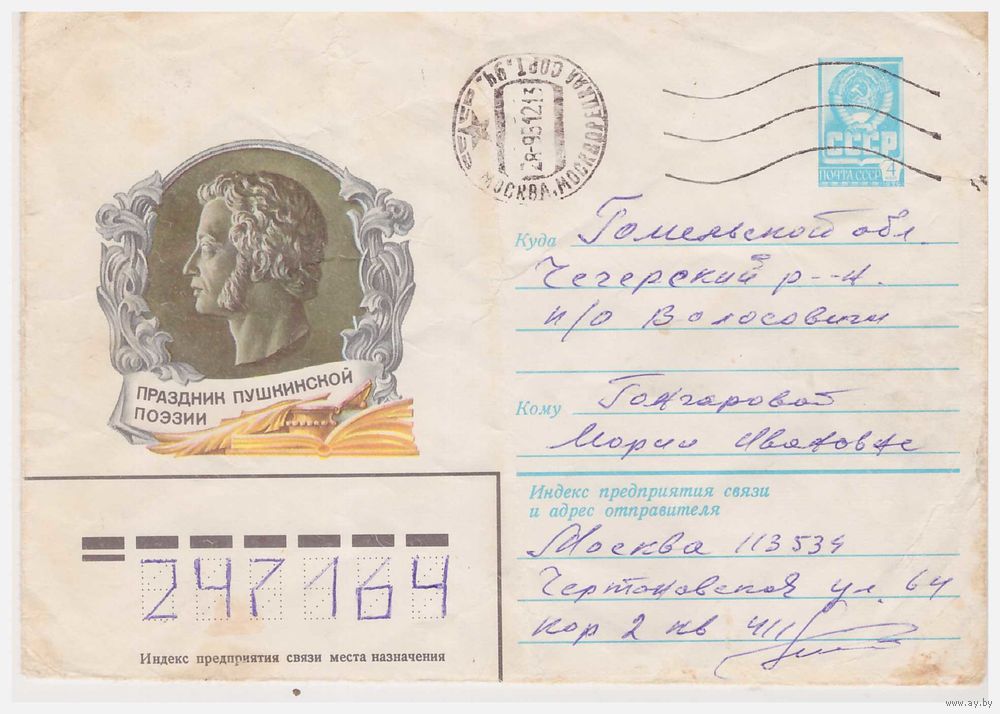 СССР
МОСКВА, МОСКВОРЕЦКАЯ СОРТ. 94.
28-9-83 12 13
СССР
ПОЧТА СССР
4
Куда Гомельской обл.
Чечерский р--н.
п/о Волосовичи
ПРАЗДНИК ПУШКИНСКОЙ
ПОЭЗИИ
Кому Гончаровой
Марии Ивановне
Индекс предприятия связи
и адрес отправителя
Москва 113534
Чертановская ул. 64
кор 2 кв 411
247164
Индекс предприятия связи места назначения
www.ay.by